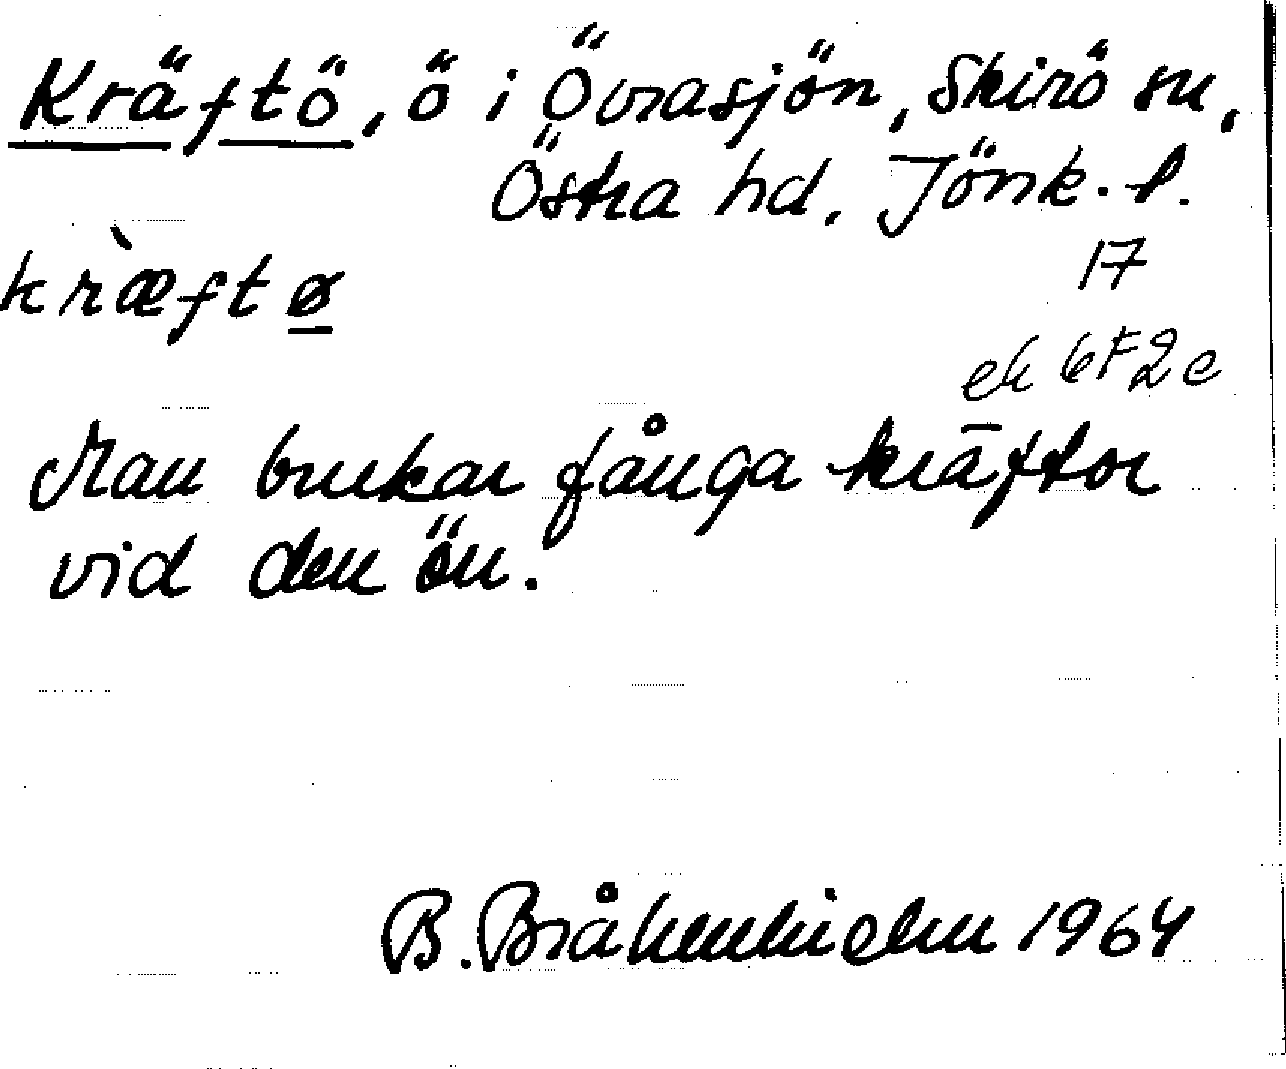 Kräftö, ö i Övrasjön, Skirö sn,
Östra hd, Jönk. l.
17
kræ̀ftø
ek 6F2c
Man brukar fånga kräftor
vid den ön.
B. Bråkenhielm 1964